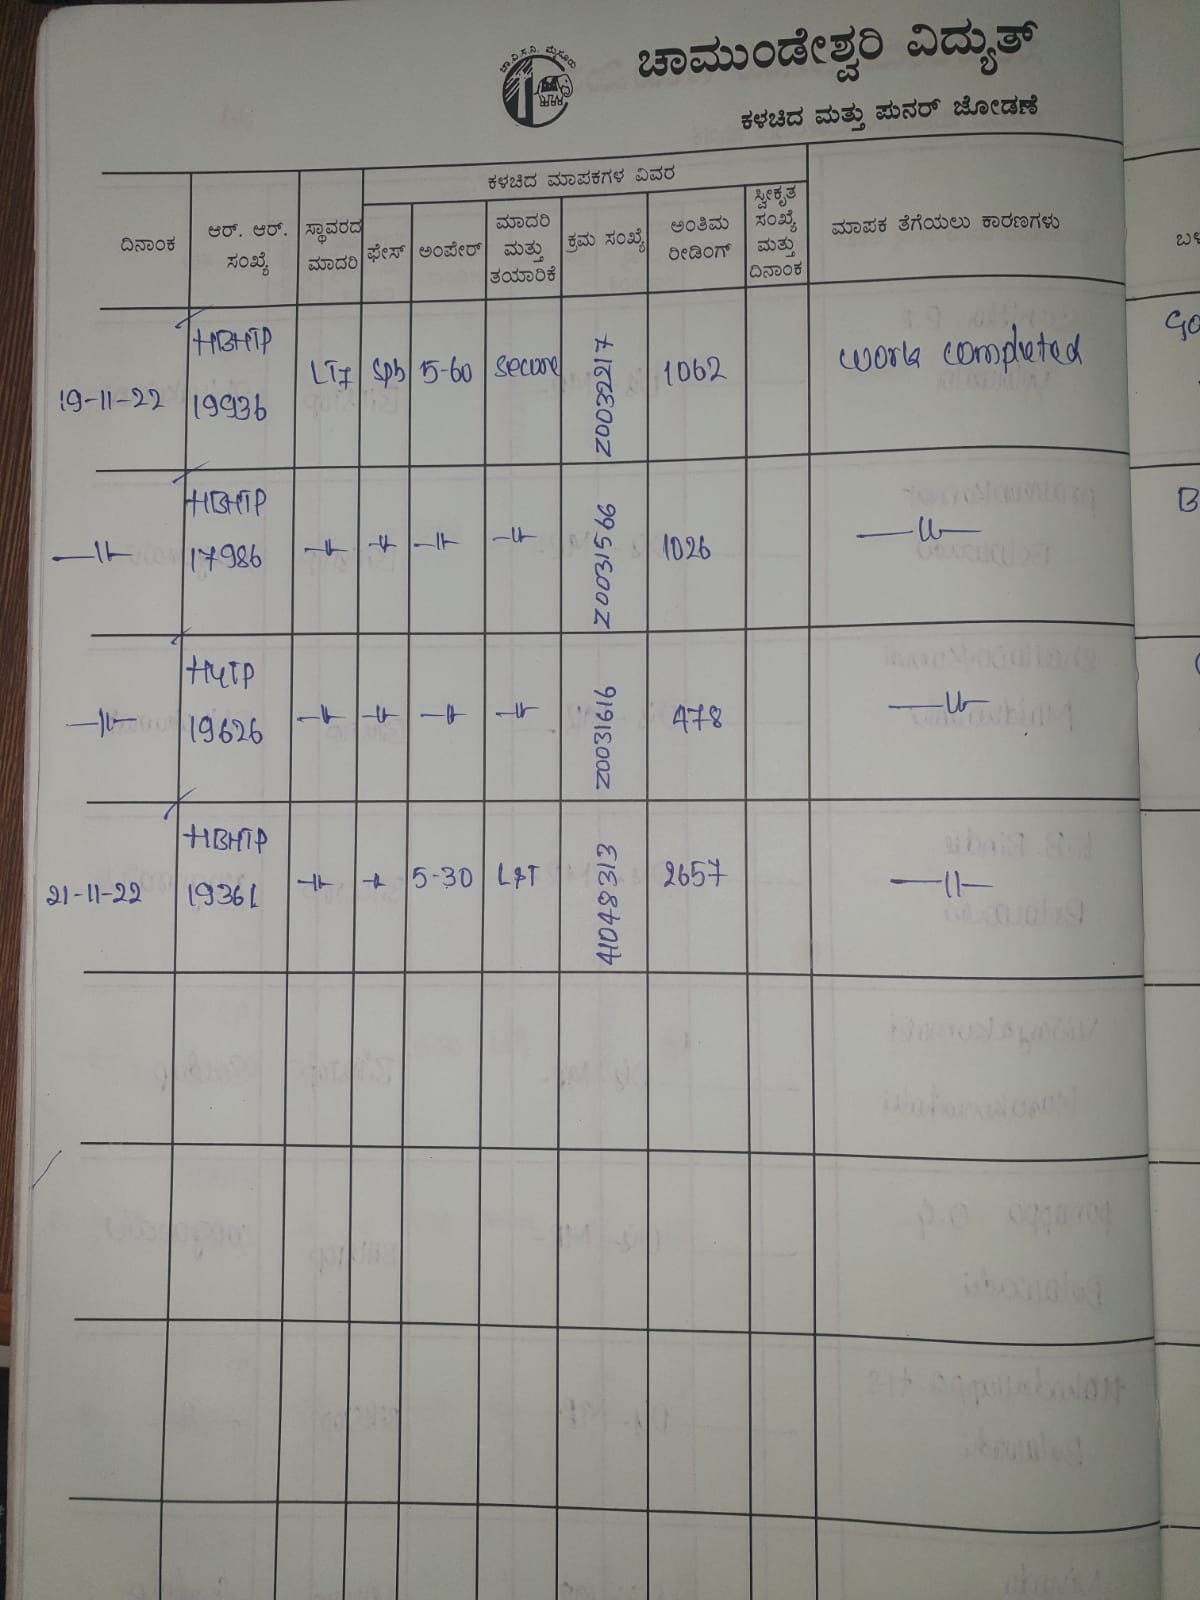 ಚಾ.ವಿ.ಸ.ನಿ. ಮೈಸೂರು
ಚಾಮುಂಡೇಶ್ವರಿ ವಿದ್ಯುತ್
ಕಳಚಿದ ಮತ್ತು ಪುನರ್ ಜೋಡಣೆ
ದಿನಾಂಕ
ಆರ್. ಆರ್.
ಸಂಖ್ಯೆ
ಸ್ಥಾವರದ
ಮಾದರಿ
ಕಳಚಿದ ಮಾಪಕಗಳ ವಿವರ
ಫೇಸ್
ಅಂಪೇರ್
ಮಾದರಿ
ಮತ್ತು
ತಯಾರಿಕೆ
ಕ್ರಮ ಸಂಖ್ಯೆ
ಅಂತಿಮ
ರೀಡಿಂಗ್
ಸ್ವೀಕೃತ
ಸಂಖ್ಯೆ
ಮತ್ತು
ದಿನಾಂಕ
ಮಾಪಕ ತೆಗೆಯಲು ಕಾರಣಗಳು
19-11-22
HBHTP
19936
LT7
Sph
5-60
Secure
Z0032217
1062
Work completed
—11—
HBHTP
17986
—11—
—11—
—11—
—11—
Z0031566
1026
—11—
—11—
HYTP
19626
—11—
—11—
—11—
—11—
Z0031616
478
—11—
21-11-22
HBHTP
19361
—11—
—11—
5-30
L&T
41048313
2657
—11—